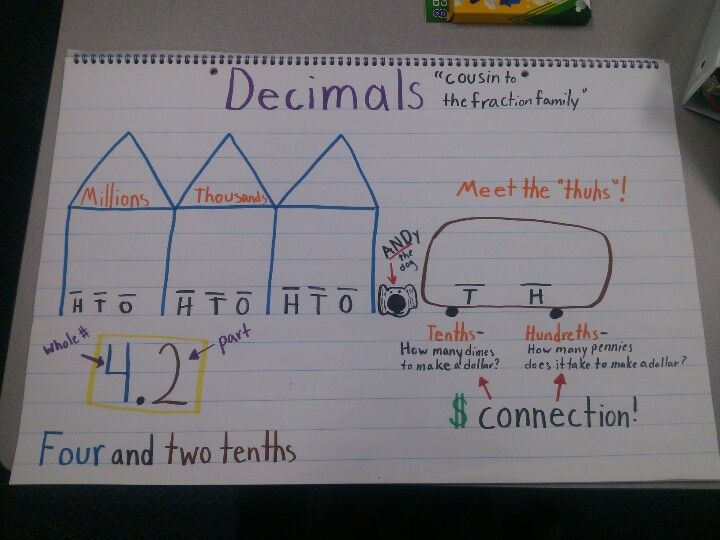 Decimals
"cousin to
the fraction family"
Millions
Thousands
H T O
H T O
H T O
ANDy
the
dog
Meet the "thuhs"!
T H
Tenths-
How many dimes
to make a dollar?
Hundreths-
How many pennies
does it take to make a dollar?
$ connection!
whole #
4.2
part
Four and two tenths